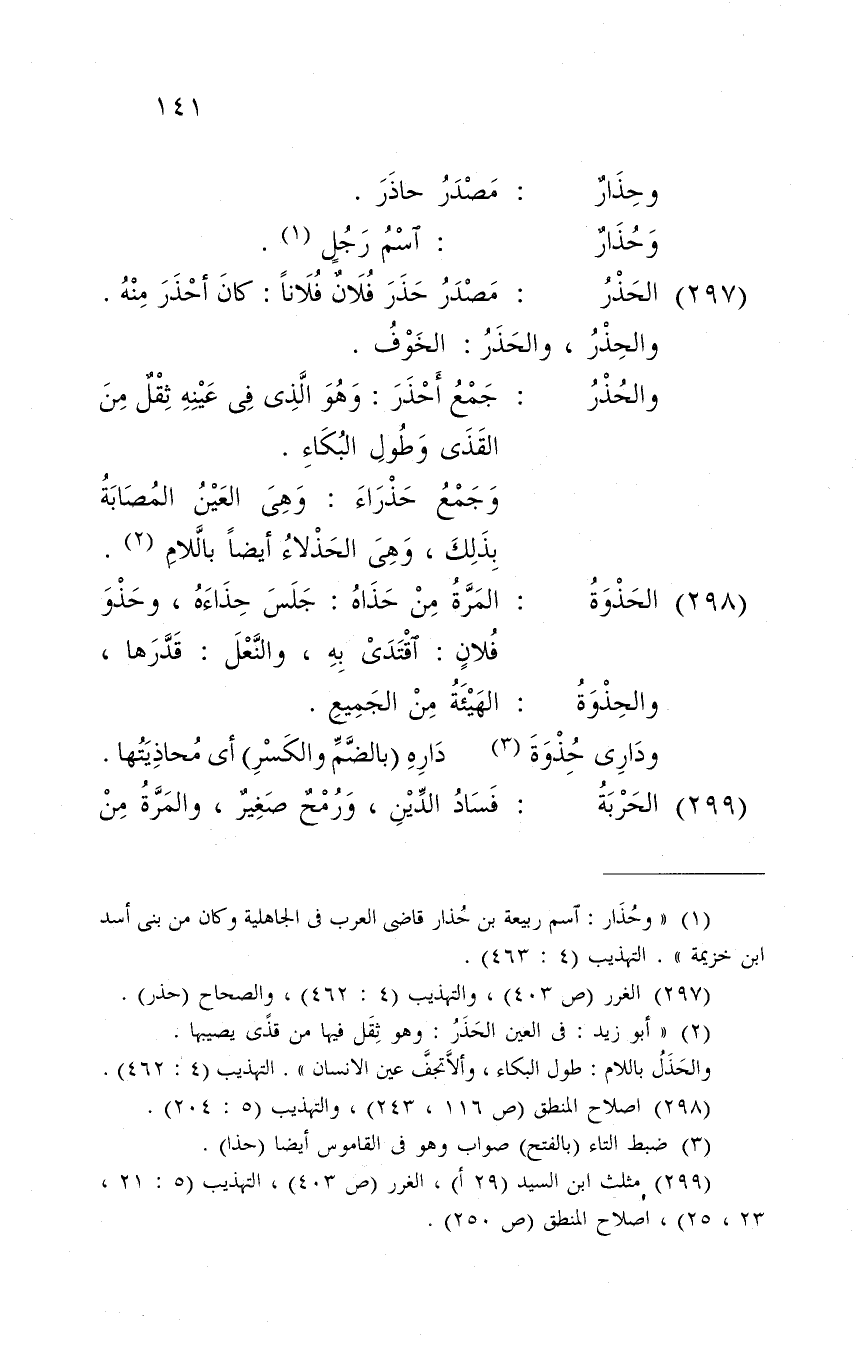 ١٤١
وحِذَارٌ : مَصْدَرُ حاذَرَ .
وَحُذَارٌ : ٱسْمُ رَجُلٍ (١) .
(٢٩٧) الحَذْرُ : مَصْدَرُ حَذَرَ فُلَانٌ فُلَاناً : كانَ أحْذَرَ مِنْهُ .
والحِذْرُ ، والحَذَرُ : الخَوْفُ .
والحُذْرُ : جَمْعُ أَحْذَرَ : وَهُوَ الَّذِى فِى عَيْنِهِ ثِقْلٌ مِنَ
القَذَى وَطُولِ البُكَاءِ .
وَجَمْعُ حَذْرَاءَ : وَهِىَ العَيْنُ المُصَابَةُ
بِذَلِكَ ، وَهِىَ الحَذْلاءُ أيضاً بالَّلامِ (٢) .
(٢٩٨) الحَذْوَةُ : المَرَّةُ مِنْ حَذَاهُ : جَلَسَ حِذَاءَهُ ، وحَذْوَ
فُلانٍ : ٱقْتَدَىْ بِهِ ، والنَّعْلَ : قَدَّرَها ،
والحِذْوَةُ : الهَيْئَةُ مِنْ الجَمِيعِ .
ودَارِى حُِذْوَةَ (٣) دَارِهِ (بالضَّمِّ والكَسْرِ) أى مُحاذِيَتُها .
(٢٩٩) الحَرْبَةُ : فَسَادُ الدِّيْنِ ، وَرُمْحٌ صَغِيرٌ ، والمَرَّةُ مِنْ
(١) « وحُذَار : ٱسم ربيعة بن حُذار قاضى العرب فى الجاهلية وكان من بنى أسد
ابن خزيمة » . التهذيب (٤ : ٤٦٣) .
(٢٩٧) الغرر (ص ٤٠٣) ، والتهذيب (٤ : ٤٦٢) ، والصحاح (حذر) .
(٢) « أبو زيد : فى العين الحَذَرُ : وهو ثِقَل فيها من قذًى يصيبها .
والحَذَلُ باللام : طول البكاء ، وألاَّتجفَّ عين الانسان » . التهذيب (٤ : ٤٦٢) .
(٢٩٨) اصلاح المنطق (ص ١١٦ ، ٢٤٣) ، والتهذيب (٥ : ٢٠٤) .
(٣) ضبط التاء (بالفتح) صواب وهو فى القاموس أيضا (حذا) .
(٢٩٩) مثلث ابن السيد (٢٩ أ) ، الغرر (ص ٤٠٣) ، التهذيب (٥ : ٢١ ،
٢٣ ، ٢٥) ، اصلاح المنطق (ص ٢٥٠) .